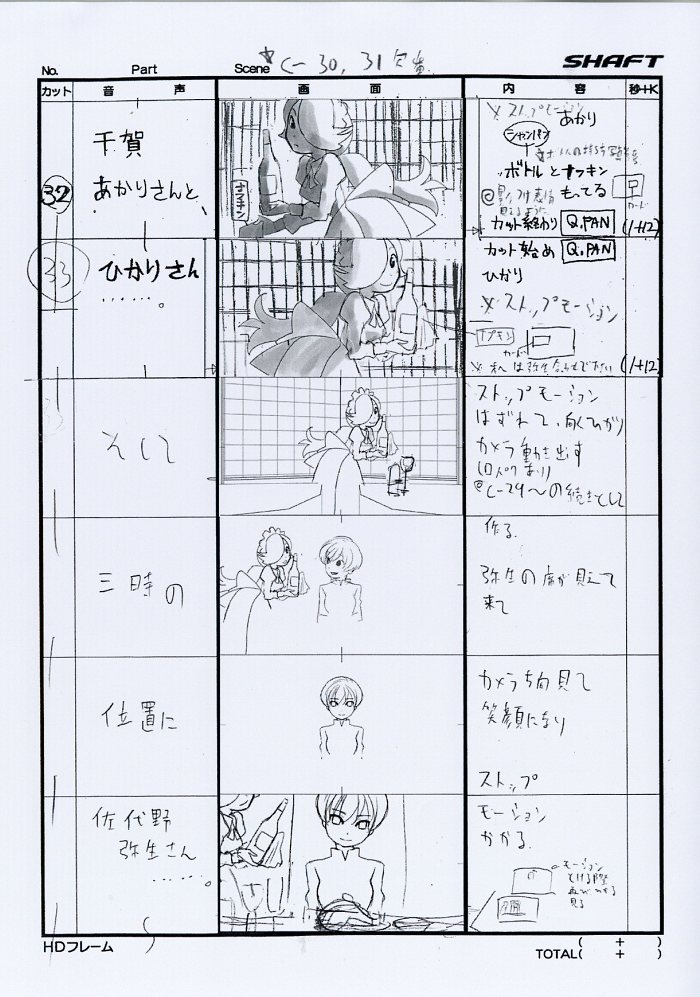 No.
Part
Scene
C- 30, 31 欠番
SHAFT
カット
音 声
画 面
内 容
秒+K
32
千賀
あかりさんと、
ナフキン
※ストップモーション
あかり
シャンパン
ボトルとナフキン
もってる
カード
カット終わり Q.PAN
(1+12)
33
ひかりさん
……。
カット始め Q.PAN
ひかり
※ストップモーション
ナプキン
カード
(1+12)
そして
ストップモーション
はずれて、向くひかり
カメラ動き出す
C-29〜の続きとして
三時の
作る.
弥生の席が見えて
来て
位置に
カメラ方向見て
笑顔になり
ストップ
佐代野
弥生さん
……。
モーション
かかる.
モーション
見る
HDフレーム
( + )
TOTAL( + )